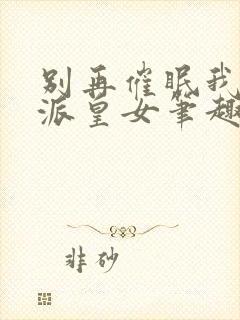 别再催眠我
派皇女笔趣
非砂